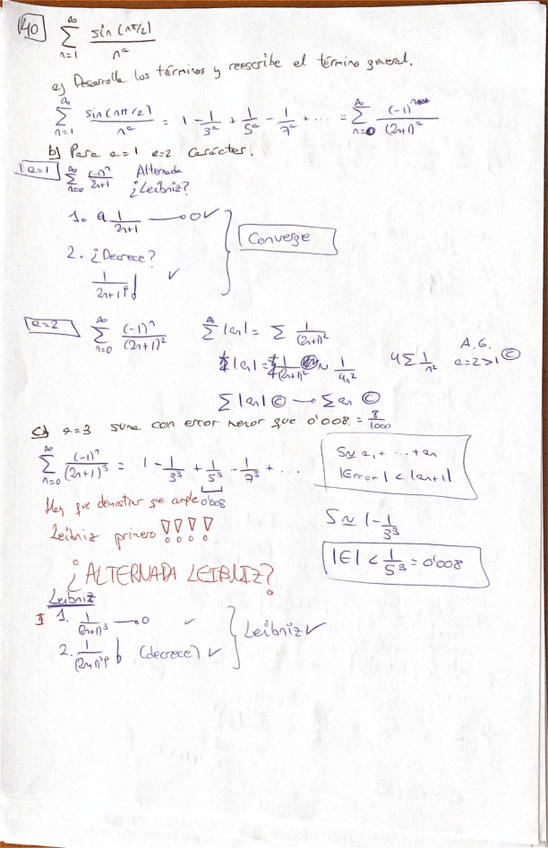 140 ∑_{n=1}^{∞} sin(nπ/2) / n^a
a) Desarrolla los términos y reescribe el término general.
∑_{n=1}^{∞} sin(nπ/2) / n^a = 1 - 1/3^a + 1/5^a - 1/7^a + ... = ∑_{n=0}^{∞} (-1)^n / (2n+1)^a
b) Para a=1 a=2 carácter.
a=1 ∑_{n=0}^{∞} (-1)^n / 2n+1 Alternada
¿Leibniz?
1. 1/2n+1 → 0 ✓
2. ¿Decrece?
1/2n+1 ↑ ↓ ✓
Converge
a=2 ∑_{n=0}^{∞} (-1)^n / (2n+1)^2 ∑^{∞} |an| = ∑ 1/(2n+1)^2
|an| = 1/(2n+1)^2 ~ 1/4n^2 4∑ 1/n^2 A.G. a=2>1 Ⓒ
∑|an| Ⓒ → ∑an Ⓒ
c) a=3 suma con error menor que 0'008 = 8/1000
∑_{n=0}^{∞} (-1)^n / (2n+1)^3 = 1 - 1/3^3 + 1/5^3 - 1/7^3 + ...
0'008
S≈ a1 + ... + an
|Error| < |an+1|
Hay que demostrar que cumple
Leibniz primero !!!!
S≈ 1 - 1/3^3
|E| < 1/5^3 = 0'008
¿ALTERNADA LEIBNIZ?
Leibniz
1. 1/(2n+1)^3 → 0 ✓
2. 1/(2n+1)^3 ↑ ↓ (decrece) ✓
Leibniz ✓